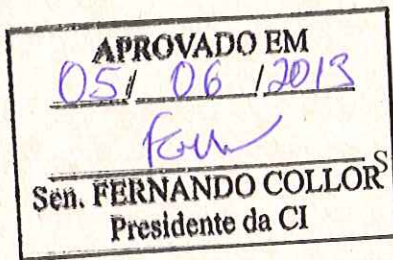 APROVADO EM
05/ 06 /2013
S
Sen. FERNANDO COLLOR
Presidente da CI